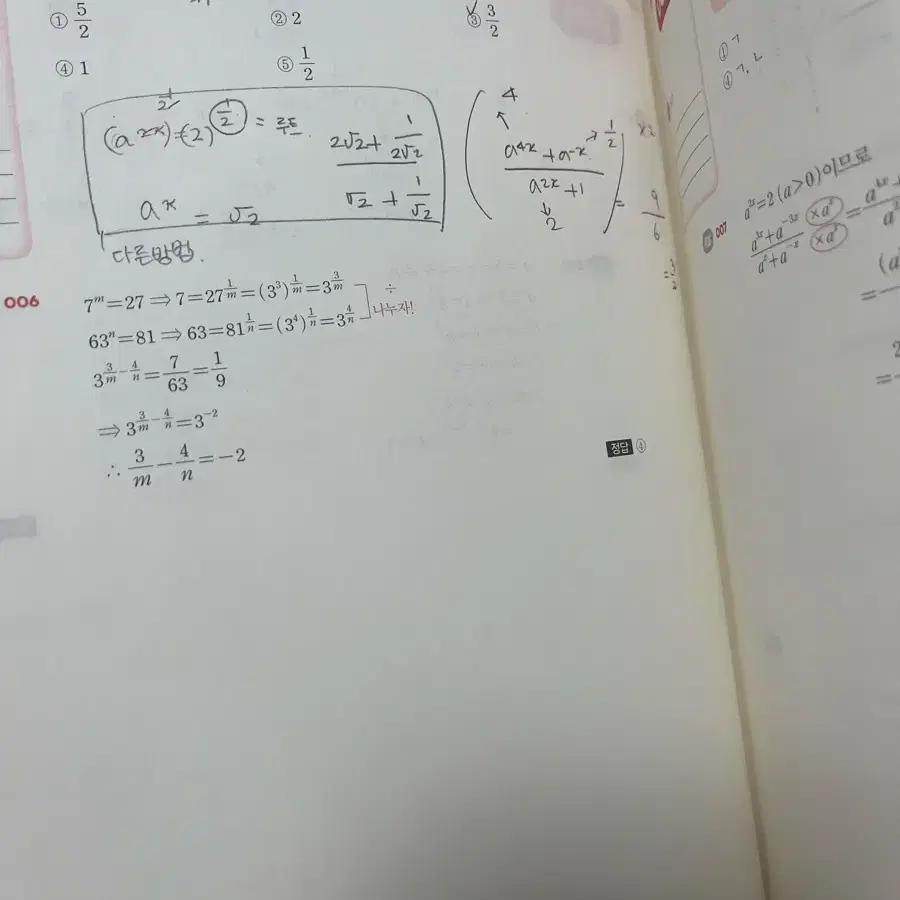 ① 5/2 ② 2 ③ 3/2
④ 1 ⑤ 1/2
(a^2x)^1/2 = (2)^1/2 = 루트
a^x = √2
2√2 + 1/2√2
√2 + 1/√2
다른방법.
4
a^4x + a^-x → 1/2
a^2x + 1
2
= 9/6
= 3/2
006
7^m=27 ⇒ 7=27^1/m=(3^3)^1/m=3^3/m
63^n=81 ⇒ 63=81^1/n=(3^4)^1/n=3^4/n
÷
나누자!
3^(3/m-4/n)=7/63=1/9
⇒ 3^(3/m-4/n)=3^-2
∴ 3/m-4/n=-2
정답 ④
① ㄱ
④ ㄱ, ㄴ
007
a^2x=2(a>0)이므로